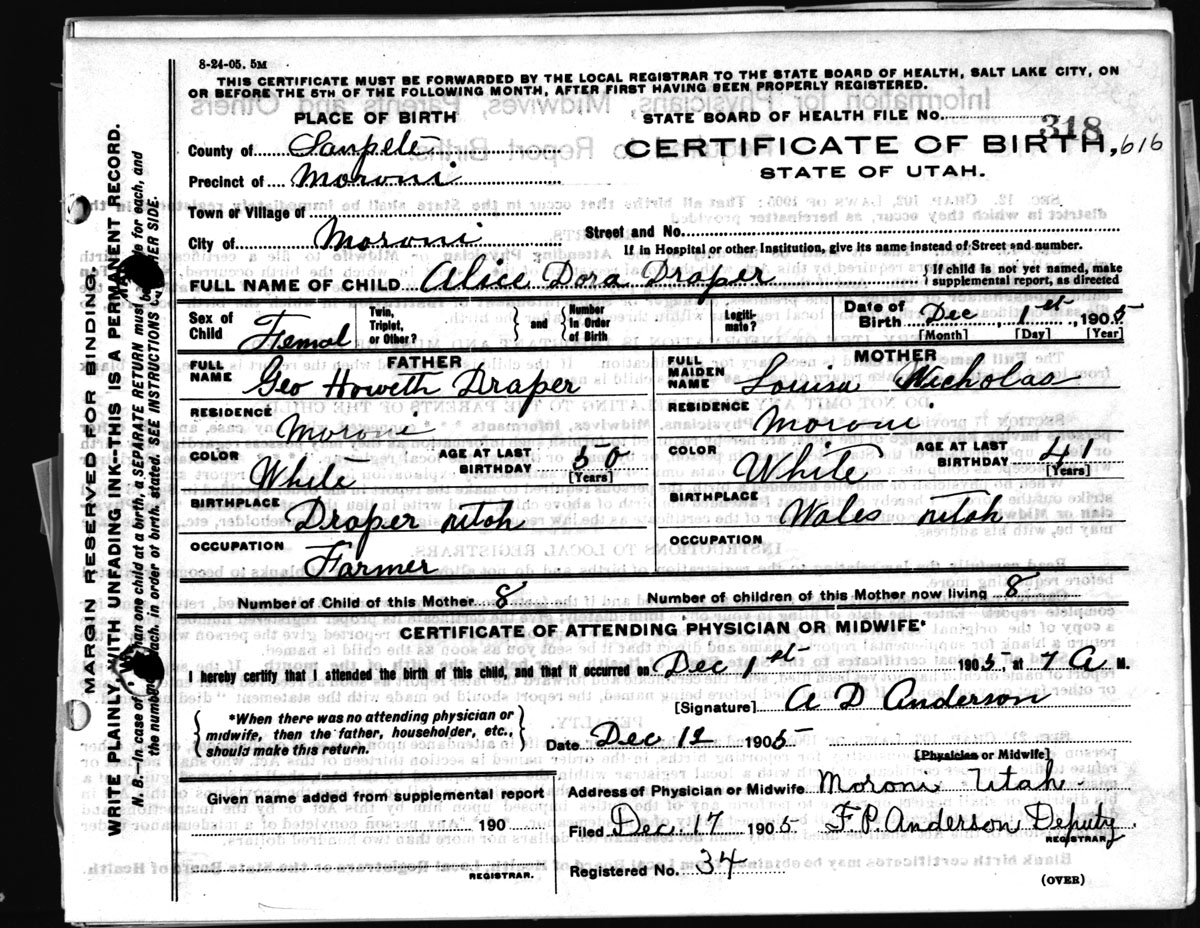 8-24-05. 5M
THIS CERTIFICATE MUST BE FORWARDED BY THE LOCAL REGISTRAR TO THE STATE BOARD OF HEALTH, SALT LAKE CITY, ON
OR BEFORE THE 5TH OF THE FOLLOWING MONTH, AFTER FIRST HAVING BEEN PROPERLY REGISTERED.
PLACE OF BIRTH
STATE BOARD OF HEALTH FILE NO. 318
County of Sanpete
CERTIFICATE OF BIRTH, 616
Precinct of Moroni
STATE OF UTAH.
Town or Village of
Street and No.
City of Moroni
If in Hospital or other Institution, give its name instead of Street and number.
FULL NAME OF CHILD Alice Dora Draper
{ If child is not yet named, make
supplemental report, as directed
Sex of Child Femal
Twin, Triplet, or Other?
and
Number in Order of Birth
Legiti- mate?
Date of Birth Dec 1st, 1905
[Month] [Day] [Year]
FATHER
FULL NAME Geo Howeth Draper
RESIDENCE Moroni
COLOR White
AGE AT LAST BIRTHDAY 50
[Years]
BIRTHPLACE Draper utah
OCCUPATION Farmer
MOTHER
FULL MAIDEN NAME Louisa Nicholas
RESIDENCE Moroni
COLOR White
AGE AT LAST BIRTHDAY 41
[Years]
BIRTHPLACE Wales utah
OCCUPATION
Number of Child of this Mother 8
Number of children of this Mother now living 8
CERTIFICATE OF ATTENDING PHYSICIAN OR MIDWIFE*
I hereby certify that I attended the birth of this child, and that it occurred on Dec 1st 1905, at 7 A M.
[Signature] A D Anderson
{ *When there was no attending physician or
midwife, then the father, householder, etc.,
should make this return. }
Date Dec 12 1905
[Physician or Midwife]
Given name added from supplemental report
190
REGISTRAR.
Address of Physician or Midwife Moroni Utah
Filed Dec. 17 1905 F. P. Anderson Deputy
REGISTRAR
Registered No. 34
(OVER)
MARGIN RESERVED FOR BINDING.
WRITE PLAINLY, WITH UNFADING INK—THIS IS A PERMENENT RECORD.
N. B.—In case of more than one child at a birth, a SEPARATE RETURN must be made for each, and
the number of each, in order of birth, stated. SEE INSTRUCTIONS OTHER SIDE.